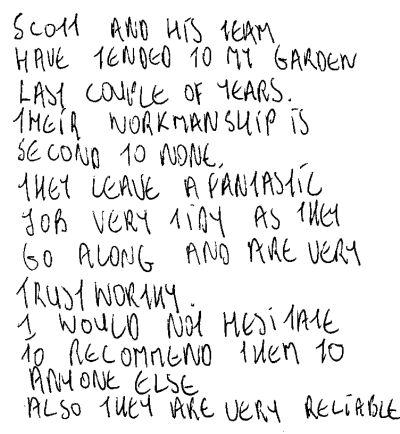 SCOTT AND HIS TEAM
HAVE TENDED TO MY GARDEN
LAST COUPLE OF YEARS.
THEIR WORKMANSHIP IS
SECOND TO NONE.
THEY LEAVE A FANTASTIC
JOB VERY TIDY AS THEY
GO ALONG AND ARE VERY
TRUSTWORTHY.
I WOULD NOT HESITATE
TO RECOMMEND THEM TO
ANYONE ELSE
ALSO THEY ARE VERY RELIABLE